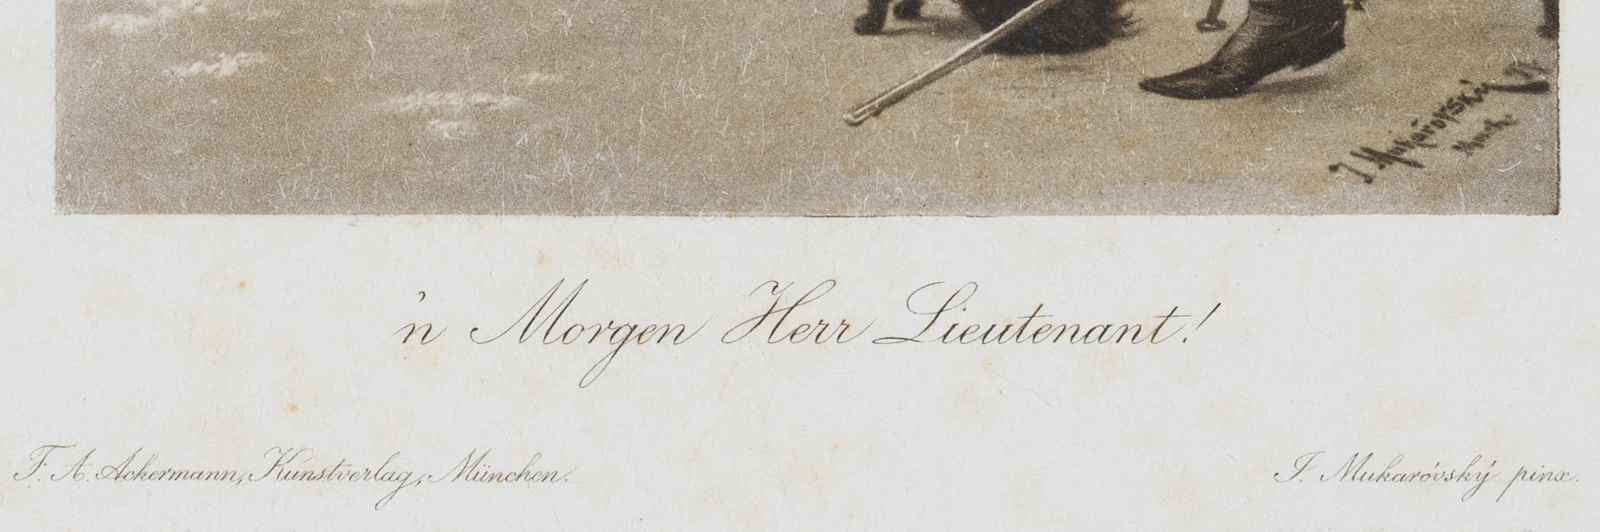 J. Mukařovský
Münch.
'n Morgen Herr Lieutenant!
F. A. Ackermann, Kunstverlag, München.
J. Mukaróvský pinx.